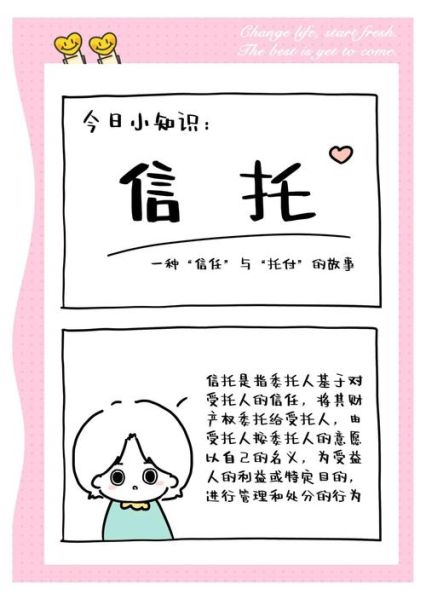 Change life, start fresh.
The best is yet to come.
今日小知识：
信 托
一种“信任”与“托付”的故事
信托是指委托人基于对
受托人的信任，将其财
产权委托给受托人，由
受托人按委托人的意愿
以自己的名义，为受益
人的利益或特定目的，
进行管理和处分的行为